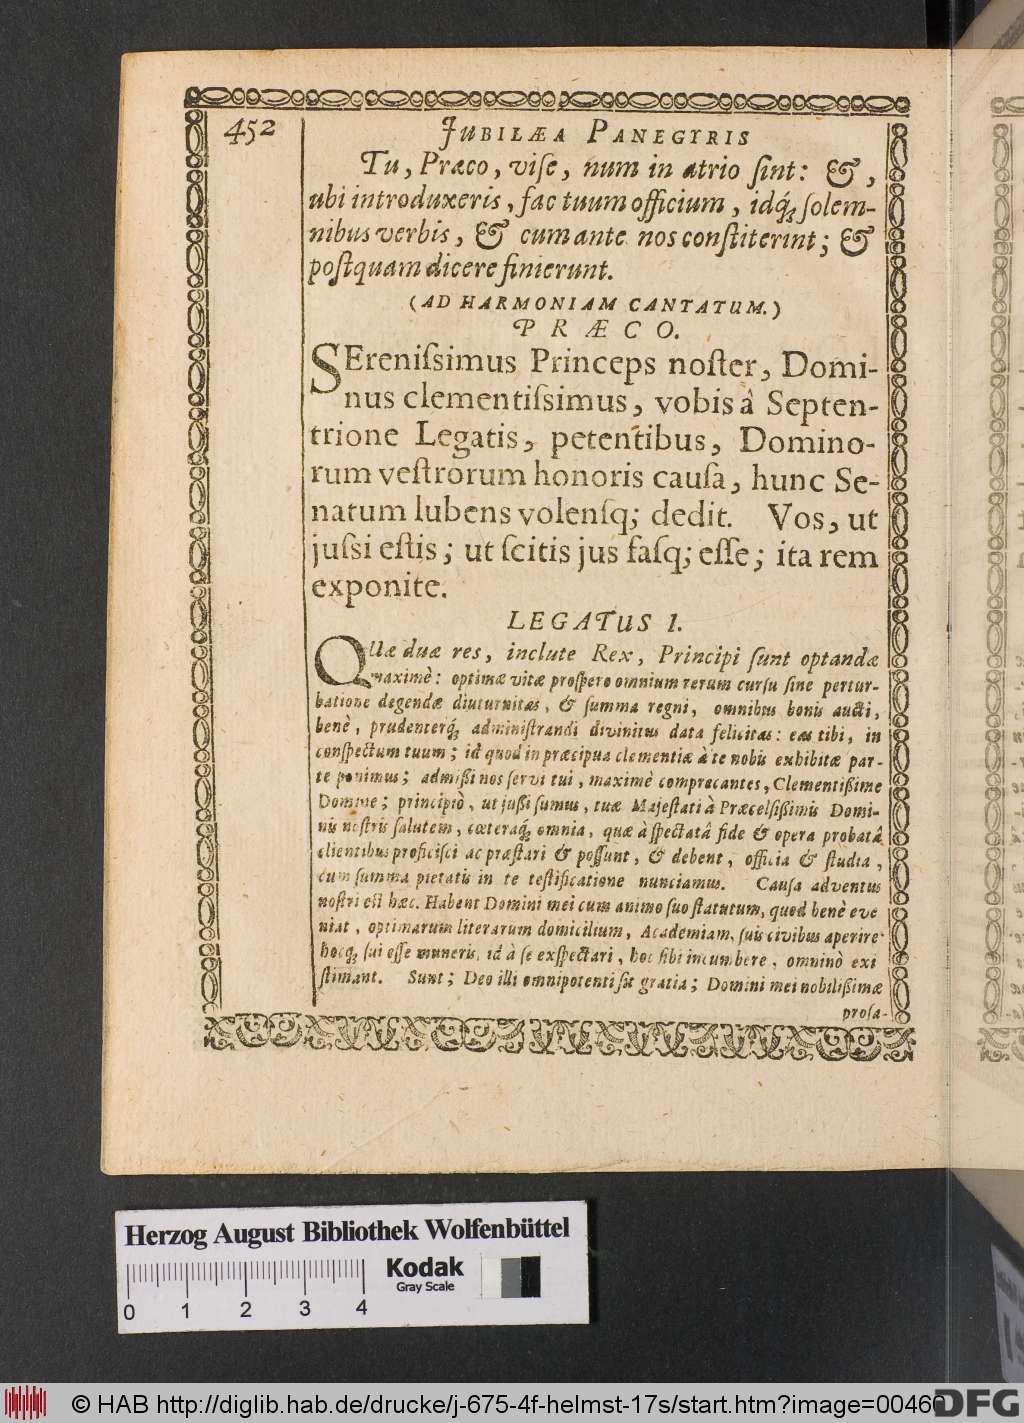 452
JUBILÆA PANEGYRIS
Tu, Præco, viſe, num in atrio ſint: &,
ubi introduxeris, fac tuum officium, idq́; ſolem-
nibus verbis, & cum ante nos conſtiterint; &
poſtquam dicere finierunt.
(AD HARMONIAM CANTATUM.)
PRÆCO.
SEreniſsimus Princeps noſter, Domi-
nus clementiſsimus, vobis â Septen-
trione Legatis, petentibus, Domino-
rum veſtrorum honoris cauſa, hunc Se-
natum lubens volenſq; dedit. Vos, ut
juſsi eſtis; ut ſcitis jus faſq; eſſe; ita rem
exponite.
LEGATUS I.
QUæ duæ res, inclute Rex, Principi ſunt optandæ
maximè: optimæ vitæ proſpero omnium rerum curſu ſine pertur-
batione degendæ diuturnitas, & ſumma regni, omnibus bonis aucti,
benè, prudenterq́; adminiſtrandi divinitus data felicitas: eas tibi, in
conſpectum tuum; id quod in præcipua clementiæ à te nobis exhibitæ par-
te ponimus; admißi nos ſervi tui, maximè comprecantes, Clementißime
Domine; principiò, ut jußi ſumus, tuæ Majeſtati à Præcelſißimis Domi-
nis noſtris ſalutem, cœteraq́; omnia, quæ à ſpectatâ fide & opera probatâ
clientibus proficiſci ac præſtari & poſſunt, & debent, officia & ſtudia,
cum ſumma pietatis in te teſtificatione nunciamus. Cauſa adventus
noſtri eſt hæc. Habent Domini mei cum animo ſuo ſtatutum, quod benè eve
niat, optimarum literarum domicilium, Academiam, ſuis civibus aperire:
hocq́; ſui eſſe muneris, id à ſe exſpectari, hoc ſibi incumbere, omninò exi
ſtimant. Sunt; Deo illi omnipotenti ſit gratia; Domini mei nobilißimæ
proſa-
Herzog August Bibliothek Wolfenbüttel
Kodak
Gray Scale
0 1 2 3 4
© HAB http://diglib.hab.de/drucke/j-675-4f-helmst-17s/start.htm?image=00460
DFG